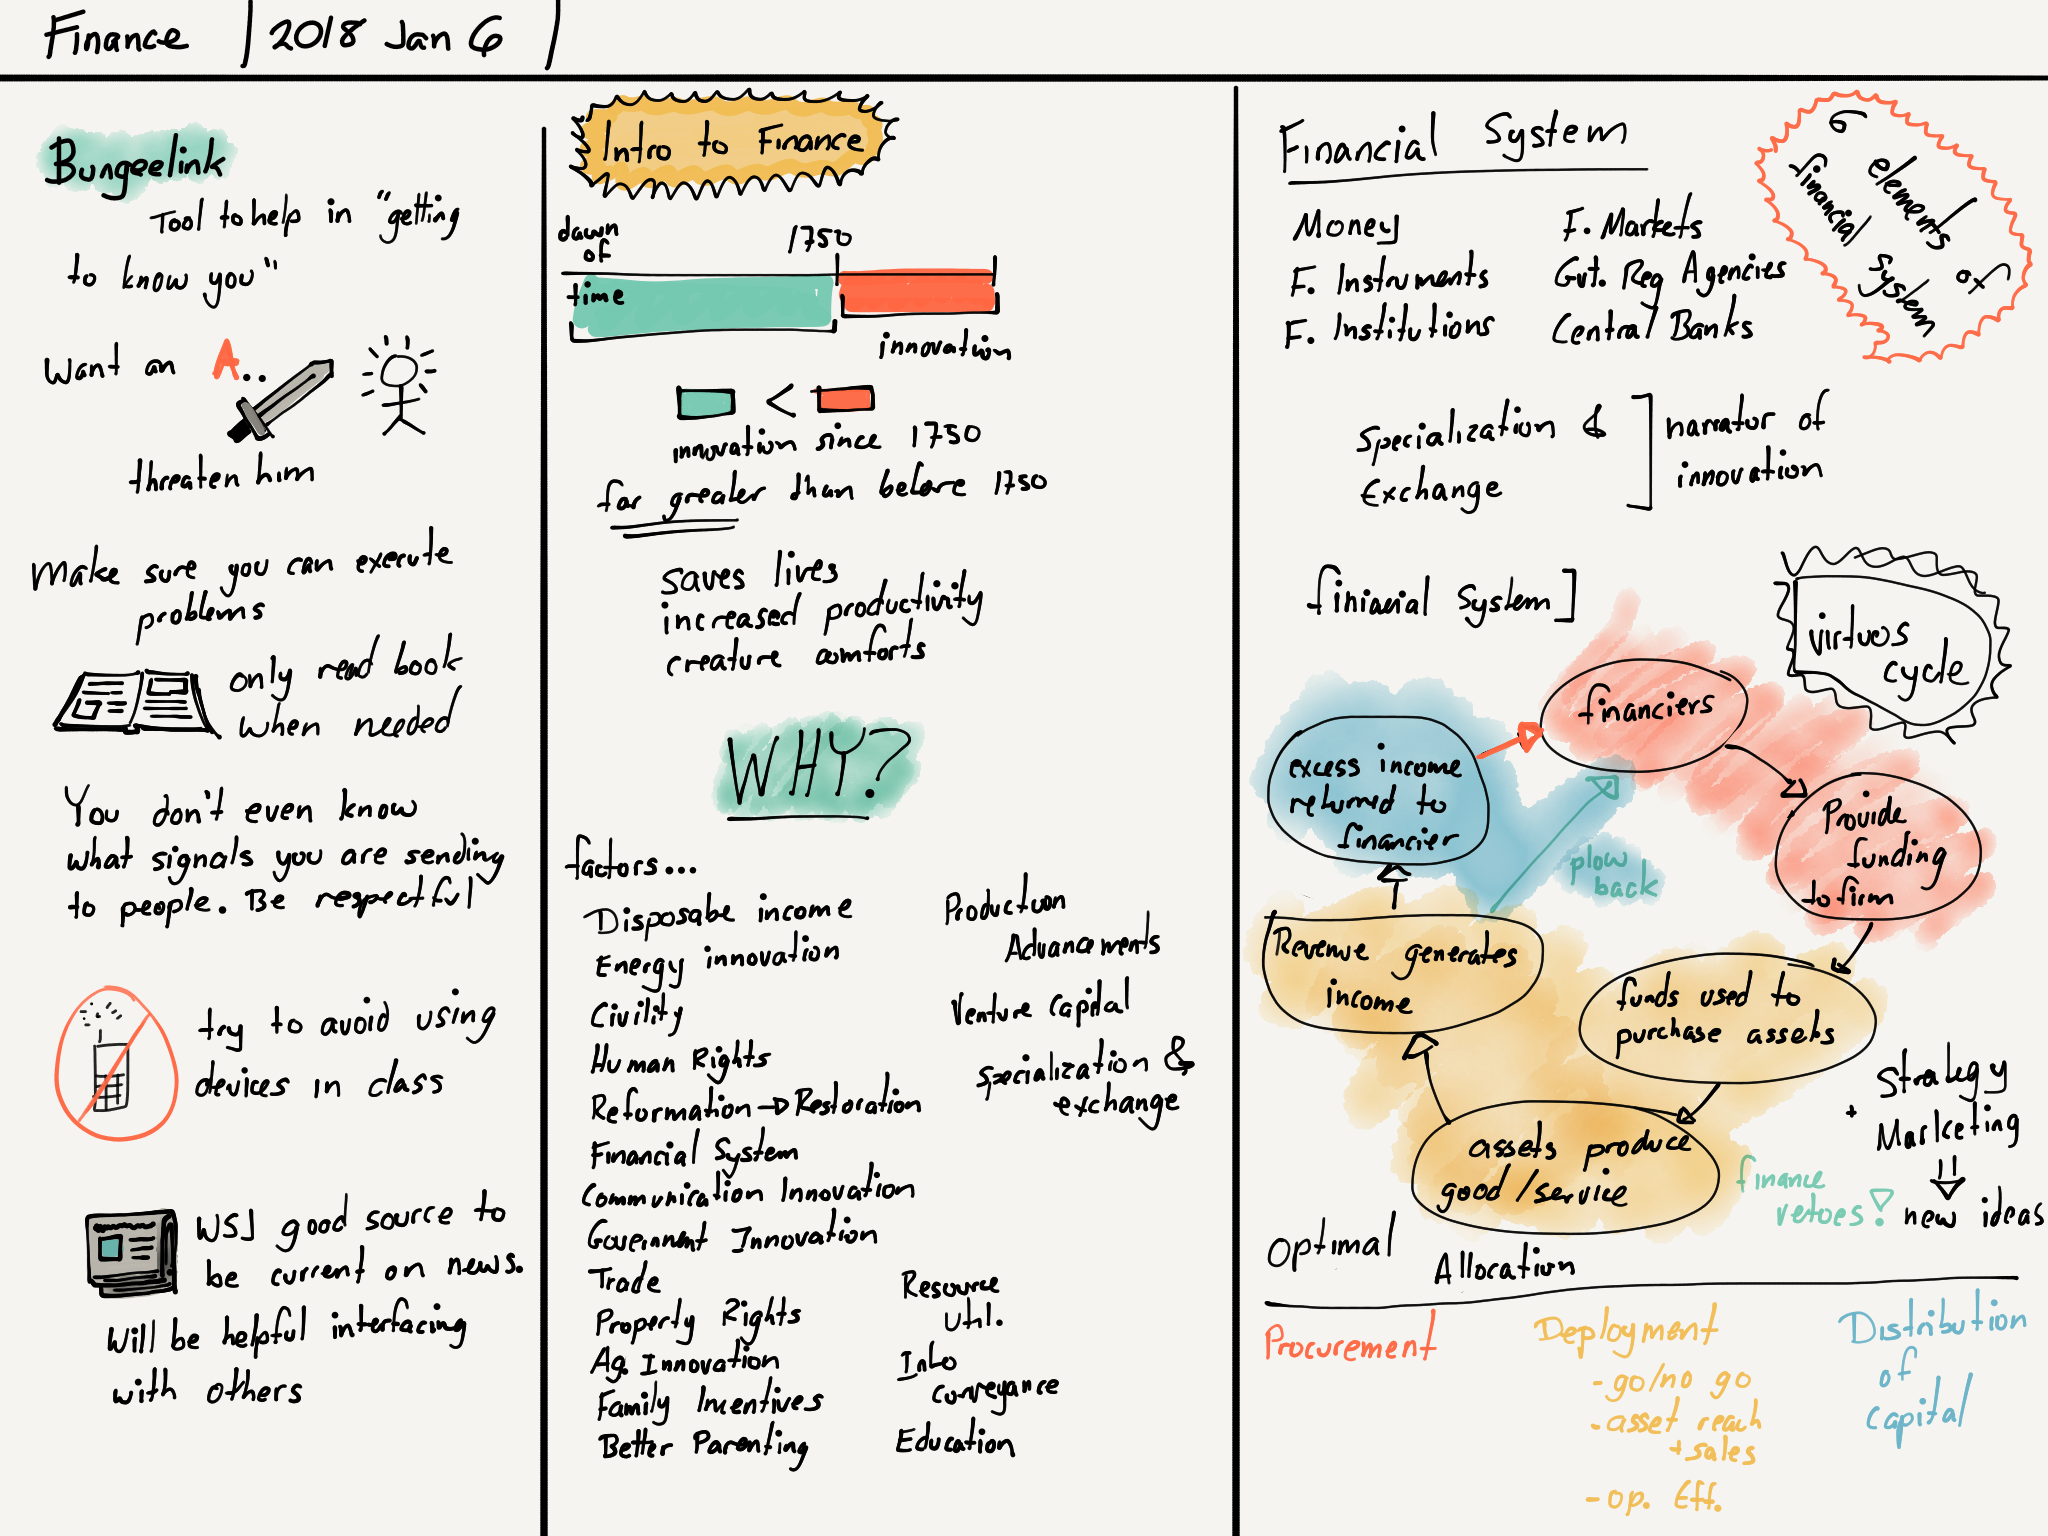 Finance | 2018 Jan 6
Bungeelink
Tool to help in "getting
to know you"
Want an A..
threaten him
Make sure you can execute
problems
only read book
when needed
You don't even know
what signals you are sending
to people. Be respectful
try to avoid using
devices in class
WSJ good source to
be current on news.
Will be helpful interfacing
with others
Intro to Finance
dawn
of
time
1750
innovation
<
innovation since 1750
far greater than before 1750
saves lives
increased productivity
creature comforts
WHY?
factors...
Disposabe income
Energy innovation
Civility
Human Rights
Reformation → Restoration
Financial System
Communication Innovation
Government Innovation
Trade
Property Rights
Ag. Innovation
Family Incentives
Better Parenting
Production
Advancements
Venture Capital
Specialization &
exchange
Resource
Util.
Info
conveyance
Education
Financial System
6 elements of
financial system
Money
F. Instruments
F. Institutions
F. Markets
Gvt. Reg Agencies
Central Banks
Specialization &
Exchange
narrator of
innovation
finiacial System]
virtuos
cycle
financiers
Provide
funding
to firm
funds used to
purchase assets
assets produce
good/service
Revenue generates
income
excess income
returned to
financier
plow
back
Strategy
+ Marketing
new ideas
finance
vetoes!
Optimal Allocation
Procurement
Deployment
- go/no go
- asset reach
+ sales
- op. Eff.
Distribution
of
capital